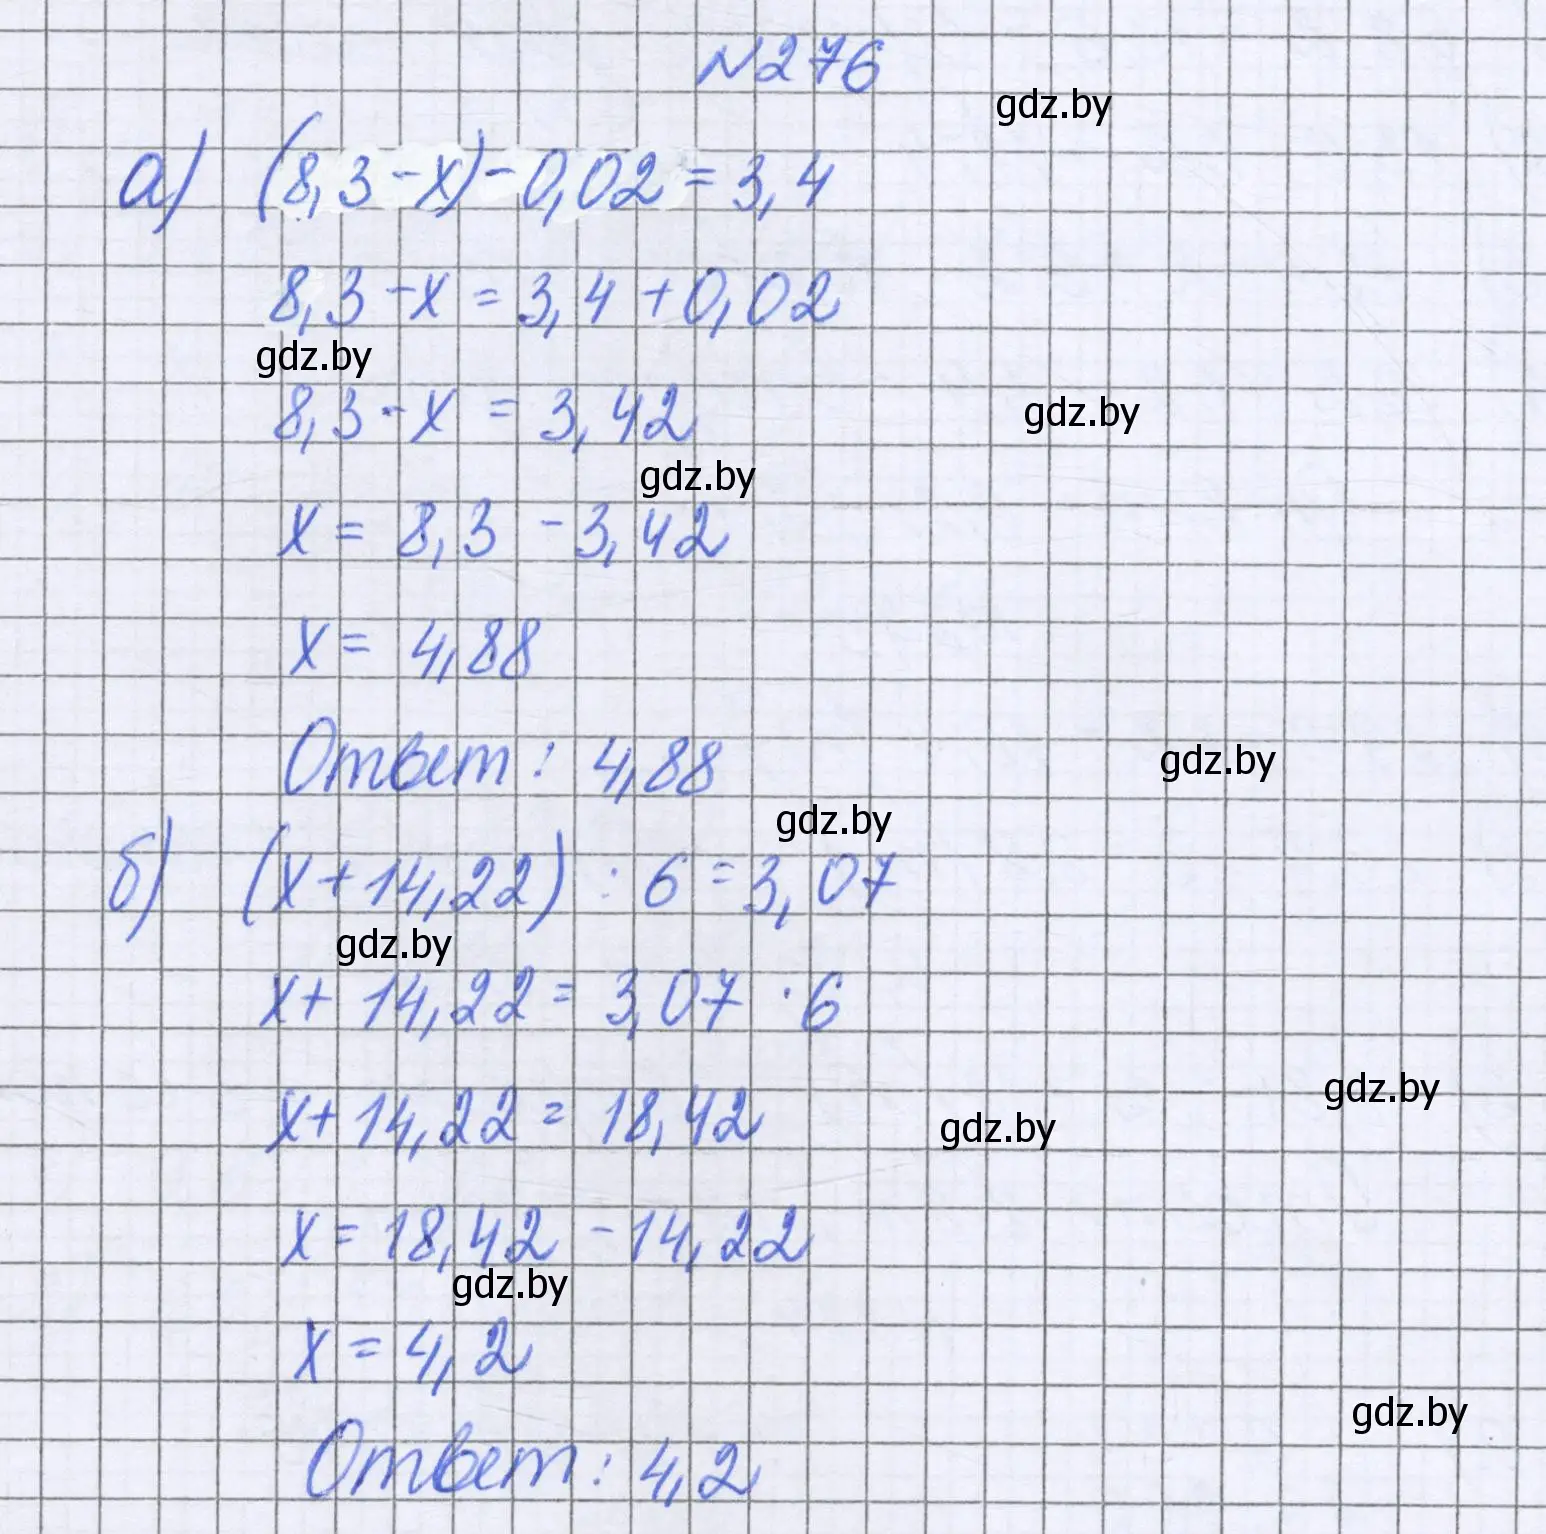 №276
gdz.by
а) (8,3-x)-0,02=3,4
8,3-x=3,4+0,02
gdz.by
8,3-x=3,42
gdz.by
gdz.by
x=8,3-3,42
x=4,88
Ответ: 4,88
gdz.by
gdz.by
б) (x+14,22):6=3,07
gdz.by
x+14,22=3,07·6
gdz.by
x+14,22=18,42
gdz.by
x=18,42-14,22
gdz.by
x=4,2
gdz.by
Ответ: 4,2